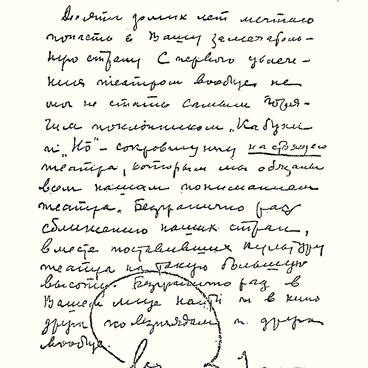 Десяти долгих лет мечтаю
попасть в Вашу замечатель-
ную страну. С первого увлече-
ния театром вообще не
мог не стать самым горя-
чим поклонником „Кабуки
и „Но" - сокровищницу настоящего
театра, которым мы обязаны
всем нашим пониманием
театра. Безгранично рад
сближению наших стран,
вместе поставивших культуру
театра на такую большую
высоту. Безгранично рад в
Вашем лице найти и в кино
друга по взглядам и друга
вообще.